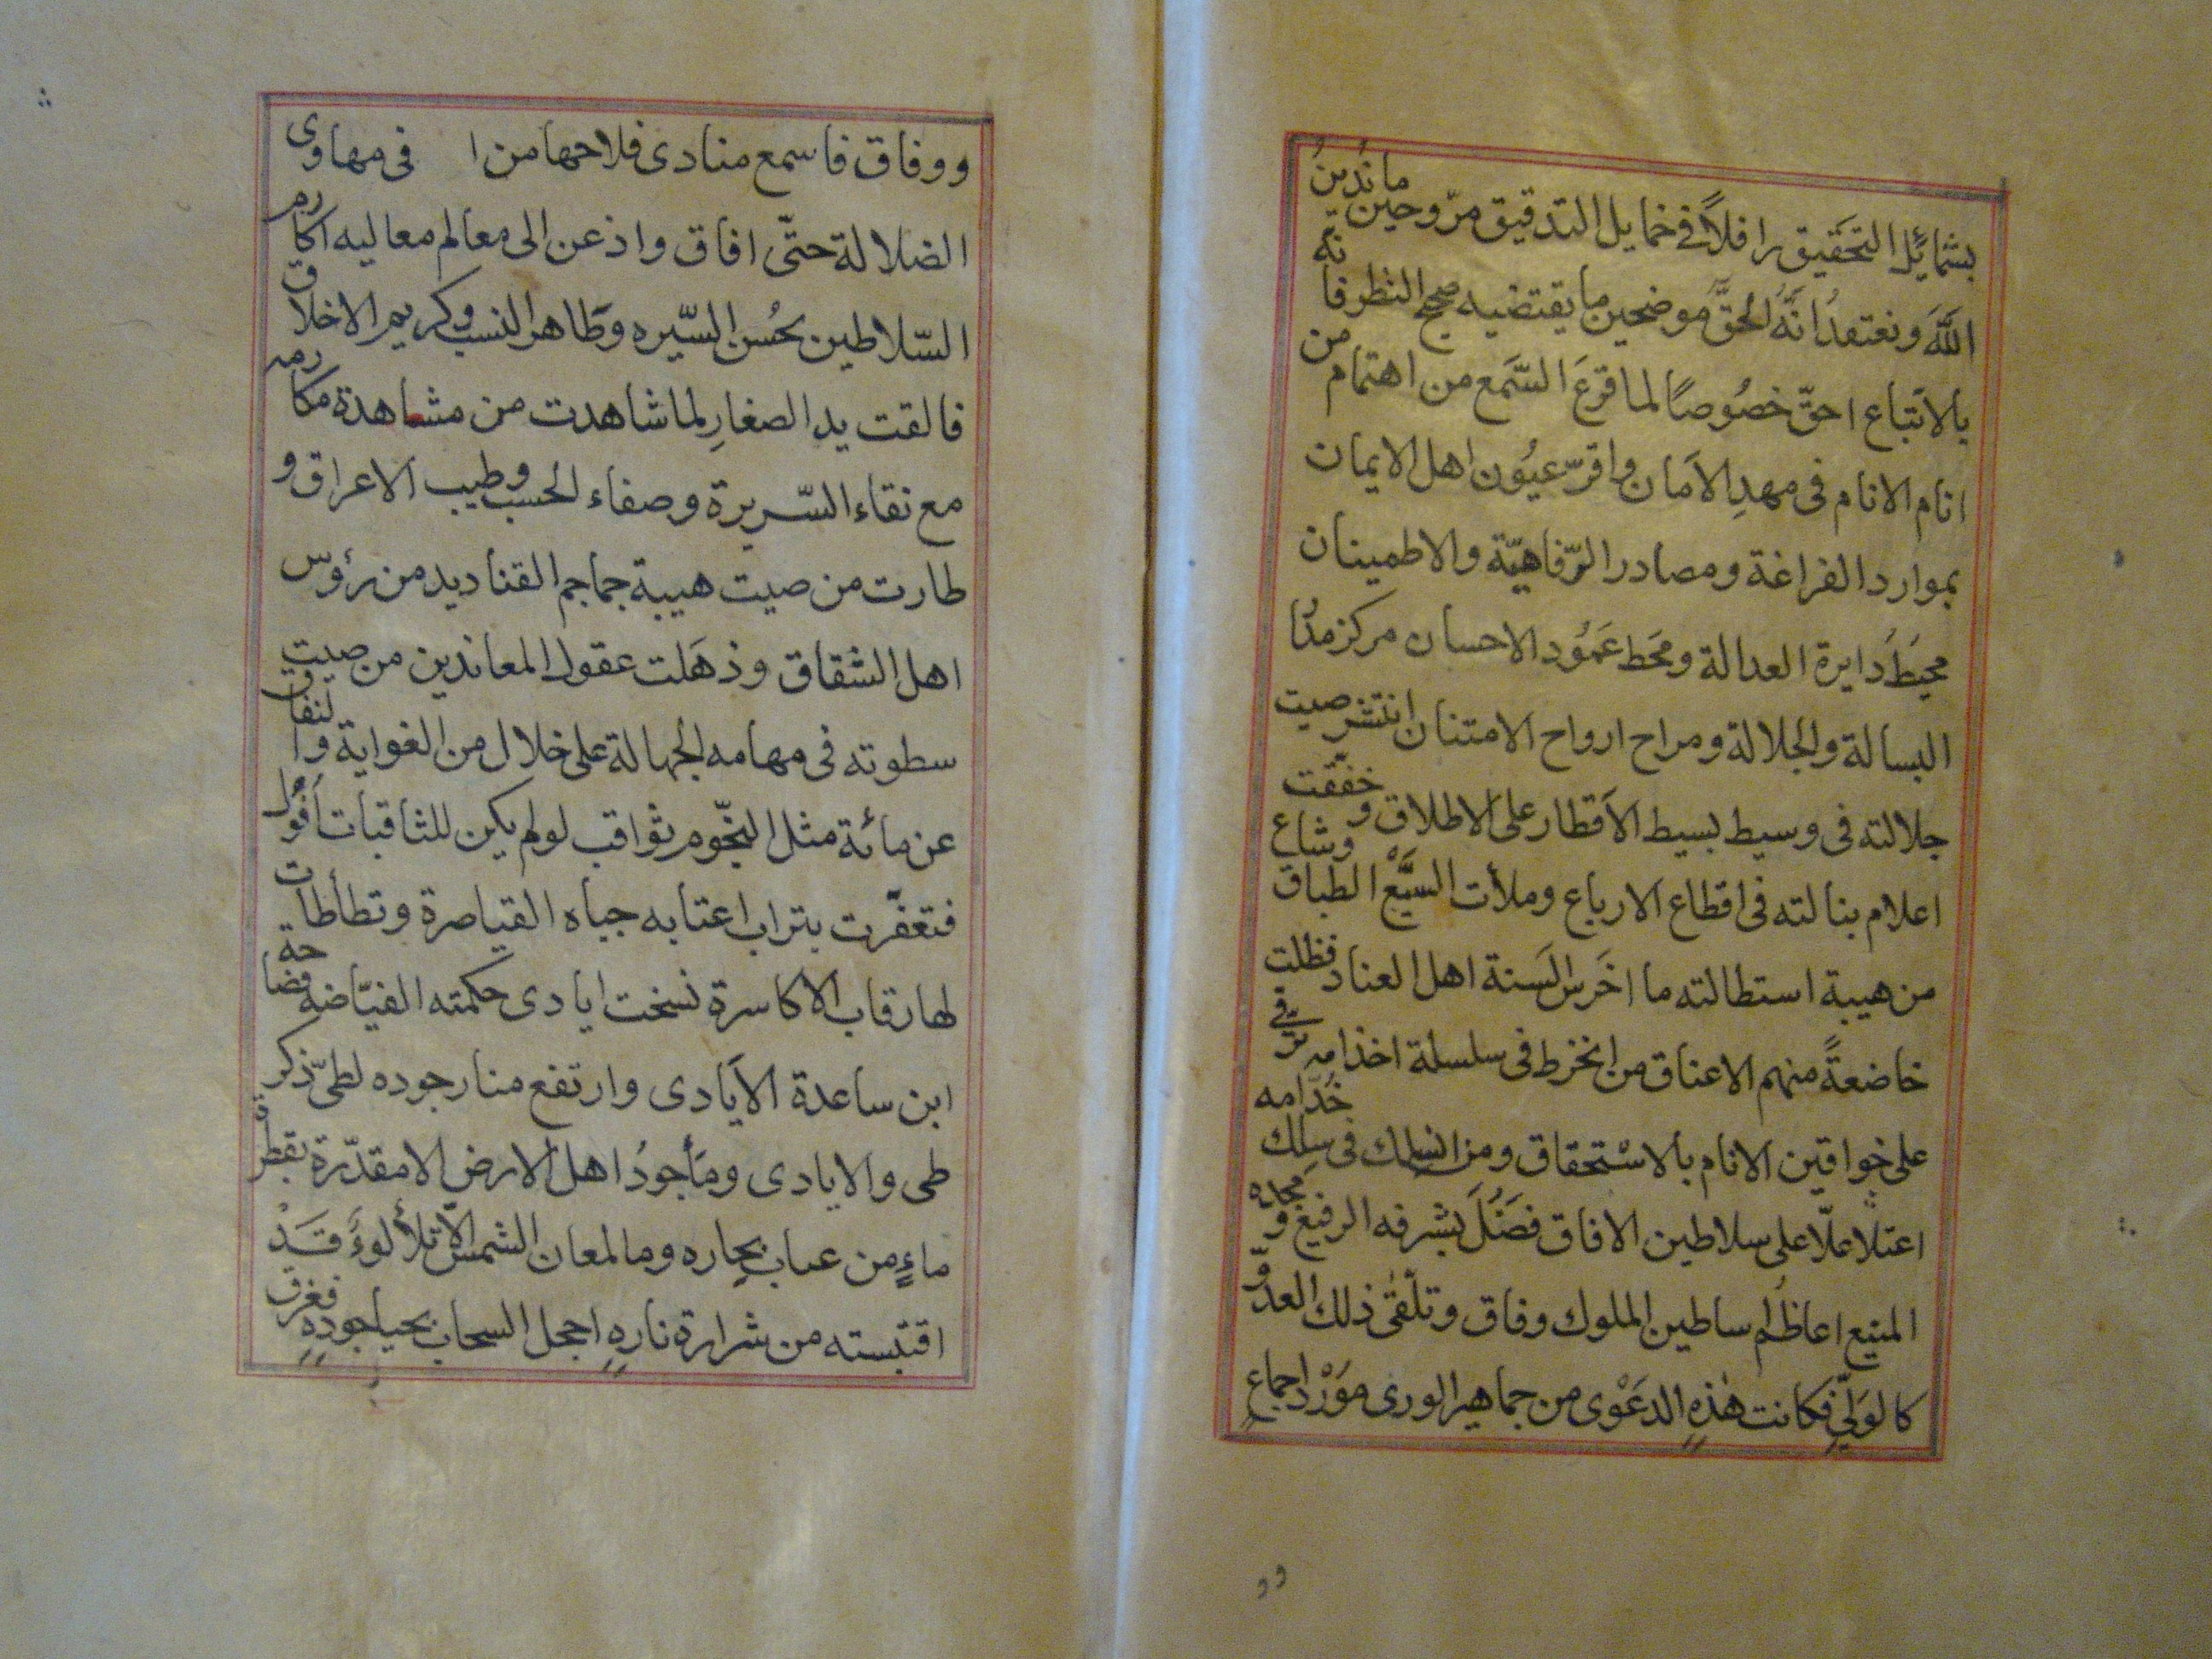 بشمائل التحقيق رافلاً في خمايل التدقيق مروحين ما ندين
الله ونعتقد انّه الحقّ موضحين ما يقتضيه صحيح النظر فانّه
بالاتباع احقّ خصُوصًا لما قرعَ السّمع من اهتمام من
انام الانام فى مهدِ الاَمان واقرّ عيُون اهل الايمان
بموارد الفراغة ومصادر الرّفاهيّة والاطمينان
محيَط دايرة العدالة ومحَط عمَود الاحسان مركز مدا
البسالة والجلالة ومراح ارواح الامتنان انتشر صيت
جلالته فى وسيط بسيط الاَقطار على الاطلاق و خفّقت
اعلام بنالته فى اقطاع الارباع وملأت السّبْع الطباق وشاع
من هيبة استطالته ما اخَرس السَنة اهل العناد فظلت
خاضعةً منهم الاعناق من انخرط فى سلسلة اخذامه ترقّى
على خواقين الانام بالاسْتحقاق ومن انسلك فى سلك خُدّامه
اعتلا علّا على سلاطين الافاق فضَل بشرفه الرفيع ومجده
المنيع اعاظم ساطين الملوك وفاق وتلقّى ذلك العدوّ
كالوَلىّ فكانت هٰذِهِ الدعَوْى من جماهير الورى موَرْد اجماع
ووفاق فاسمع منادى فلاحها من ا فى مهاوى
الضلالة حتّى افاق واذعن الى معالم معاليه اكارم
السّلاطين بحُسن السّيره وطَاهر النسب وكريم الاخلاق
فالقت يد الصغارِ لما شاهدت من مشاهدة مكارمه
مع نقاء السّريرة وصفاء الحسب وطيب الاعراق و
طارت من صيت هيبة جماجم القناديد من رؤس
اهل الشقاق وذهَلت عقول المعاندين من صيت
سطوته فى مهامه الجهالة على خلال من الغواية والنفاق
عن مائة مثل النجّوم ثواقب لو لم يكن للثاقبات اَفوُل
فتعفّرت بتراب اعتابه جباه القياصرة وتطأطأت
لها رقاب الاكاسرة نسخت ايادى حكمته الفيّاضه فصاحة
ابن ساعدة الاَيادى وارتفع منار جوده لطىّ ذكر
طى والايادى ومَا جودُ اهل الارض الا مقدّرة بقطر
ماءٍ من عباب بحاره وما لمعان الشمس الّا تلألوءٌ قَدْ
اقتبسته من شرارة نارهِ اججل السحاب بحيا جودِهِ فغرق